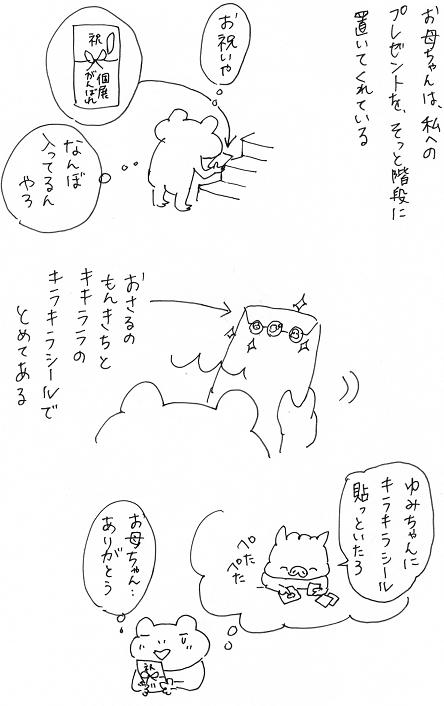 お母ちゃんは、私への
プレゼントを、そっと階段に
置いてくれている
お祝いや
祝
個展
がんばれ
なんぼ
入ってるん
やろ
おさるの
もんきちと
キキララの
キラキラシールで
とめてある
ゆみちゃんに
キラキラシール
貼っといたろ
ペたた
ペた
お母ちゃん…
ありがとう
祝